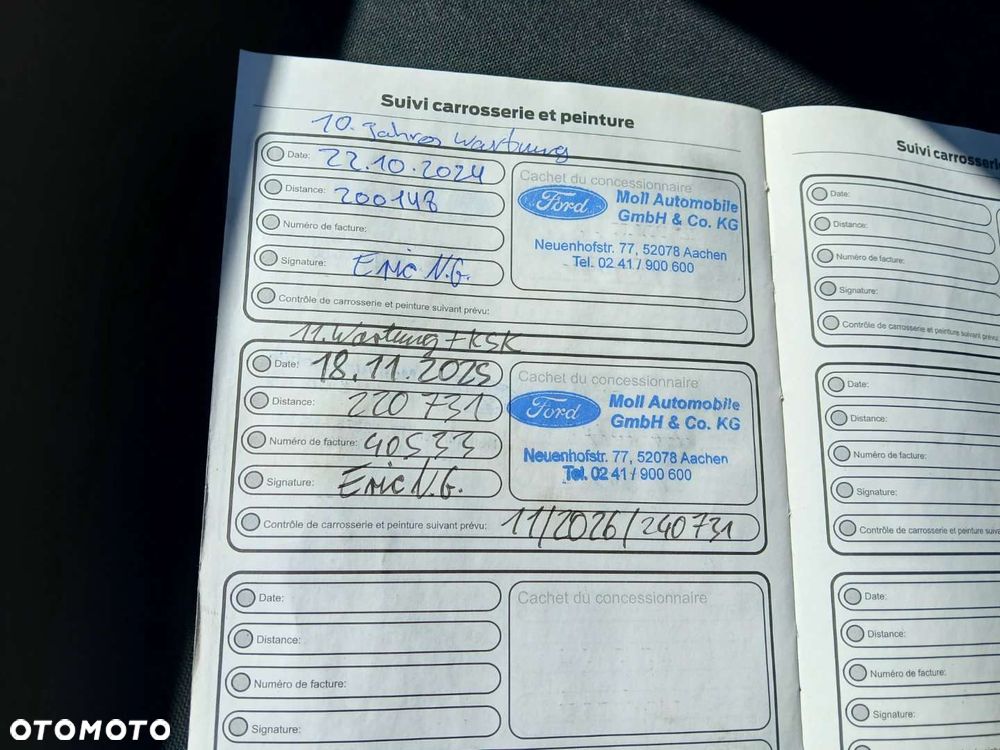 Suivi carrosserie et peinture
10. Jahres Wartung
Date: 22.10.2024
Distance: 200148
Numéro de facture:
Signature: Eric N.G.
Contrôle de carrosserie et peinture suivant prévu:
Cachet du concessionnaire
Ford Moll Automobile
GmbH & Co. KG
Neuenhofstr. 77, 52078 Aachen
Tel. 02 41 / 900 600
11. Wartung + KSK
Date: 18.11.2025
Distance: 220 731
Numéro de facture: 40533
Signature: Eric N.G.
Contrôle de carrosserie et peinture suivant prévu: 11/2026/240731
Cachet du concessionnaire
Ford Moll Automobile
GmbH & Co. KG
Neuenhofstr. 77, 52078 Aachen
Tel. 02 41 / 900 600
Date:
Distance:
Numéro de facture:
Signature:
Cachet du concessionnaire
Suivi carrosserie
Date:
Distance:
Numéro de facture:
Signature:
Contrôle de carrosserie et peinture suivant prévu
Date:
Distance:
Numéro de facture:
Signature:
Contrôle de carrosserie et peinture suiva
Date:
Distance:
Numéro de facture:
Signature:
OTOMOTO